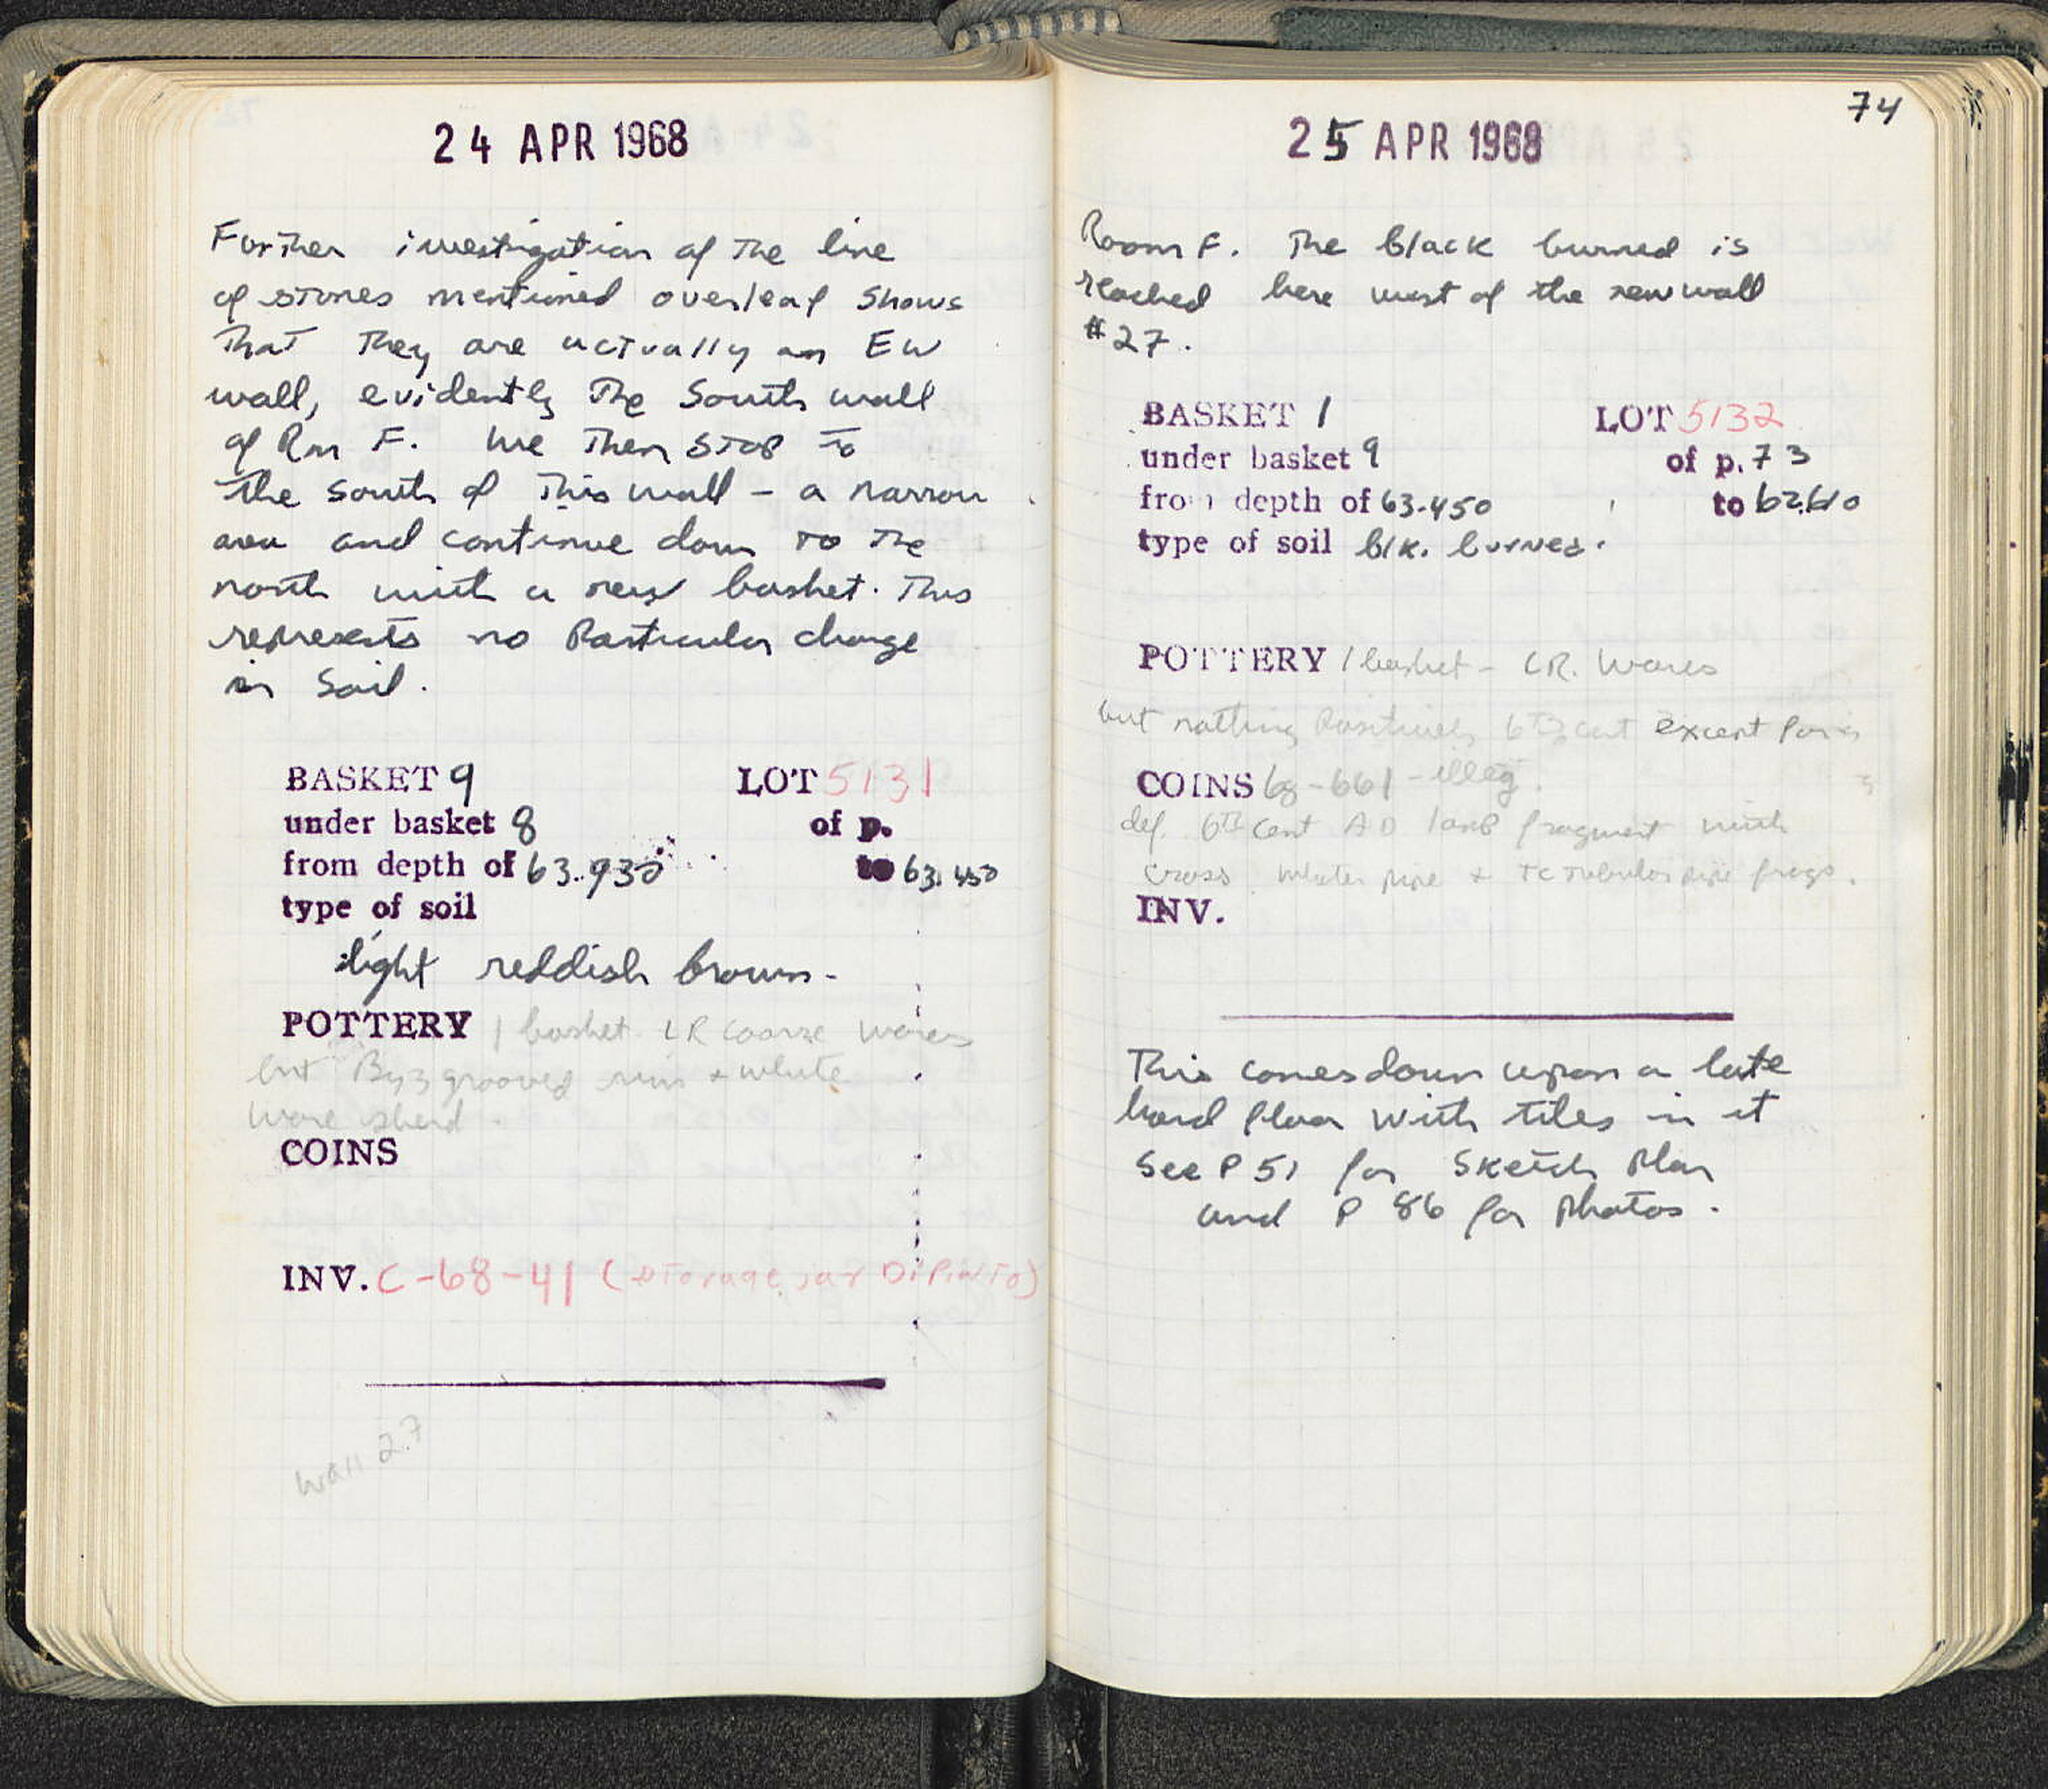 24 APR 1968
Further investigation of the line
of stones mentioned overleaf shows
that they are actually an EW
wall, evidently the South wall
of Rm F. We then stop to
the south of this wall - a narrow
area and continue down to the
north with a new basket. This
represents no particular change
in soil.
BASKET 9 LOT 5131
under basket 8 of p.
from depth of 63.930 to 63.450
type of soil
light reddish brown-
POTTERY 1 basket LR coarse wares
but Byz grooved rim + white
ware sherd.
COINS
INV. C-68-41 (storage jar Dipinto)
wall 27
74
25 APR 1968
Room F. The black burned is
reached here west of the new wall
#27.
BASKET 1 LOT 5132
under basket 9 of p. 73
from depth of 63.450 to 62.610
type of soil blk. burned.
POTTERY 1 basket - LR. Wares
but nothing positively 6th cent except
COINS 68-661 - illeg.
def. 6th cent AD lamp fragment with
cross. water pipe + TC tubular pipe frags.
INV.
This comes down upon a late
hard floor with tiles in it
See P 51 for Sketch plan
and P 86 for photos.